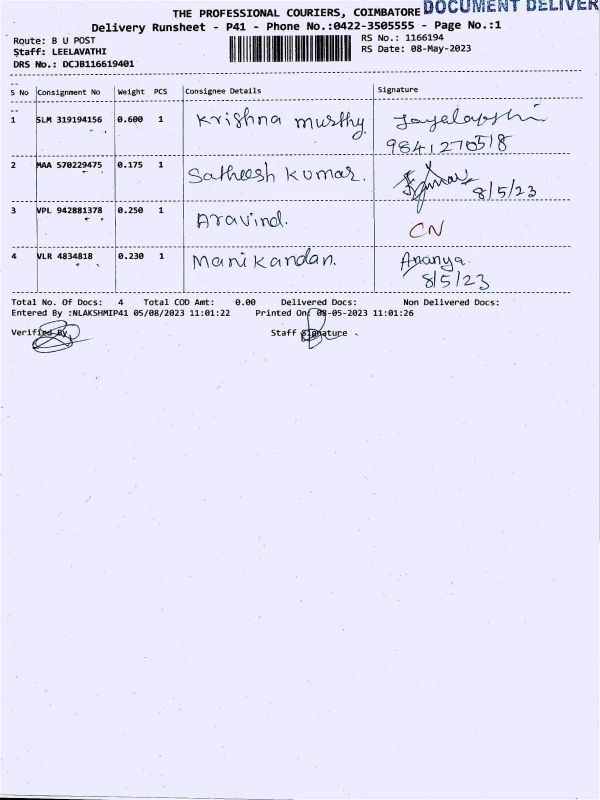 THE PROFESSIONAL COURIERS, COIMBATORE DOCUMENT DELIVER
Delivery Runsheet - P41 - Phone No.:0422-3505555 - Page No.:1
Route: B U POST RS No.: 1166194
Staff: LEELAVATHI RS Date: 08-May-2023
DRS No.: DCJB116619401
S No Consignment No Weight PCS Consignee Details Signature
1 SLM 319194156 0.600 1 Krishna murthy
9841270518
2 MAA 570229475 0.175 1 Satheesh Kumar.
8/5/23
3 VPL 942881378 0.250 1 Aravind. CN
4 VLR 4834818 0.230 1 Manikandan. Ananya.
8/5/23
Total No. Of Docs: 4 Total COD Amt: 0.00 Delivered Docs: Non Delivered Docs:
Entered By :NLAKSHMIP41 05/08/2023 11:01:22 Printed On: 08-05-2023 11:01:26
Verified By Staff Signature